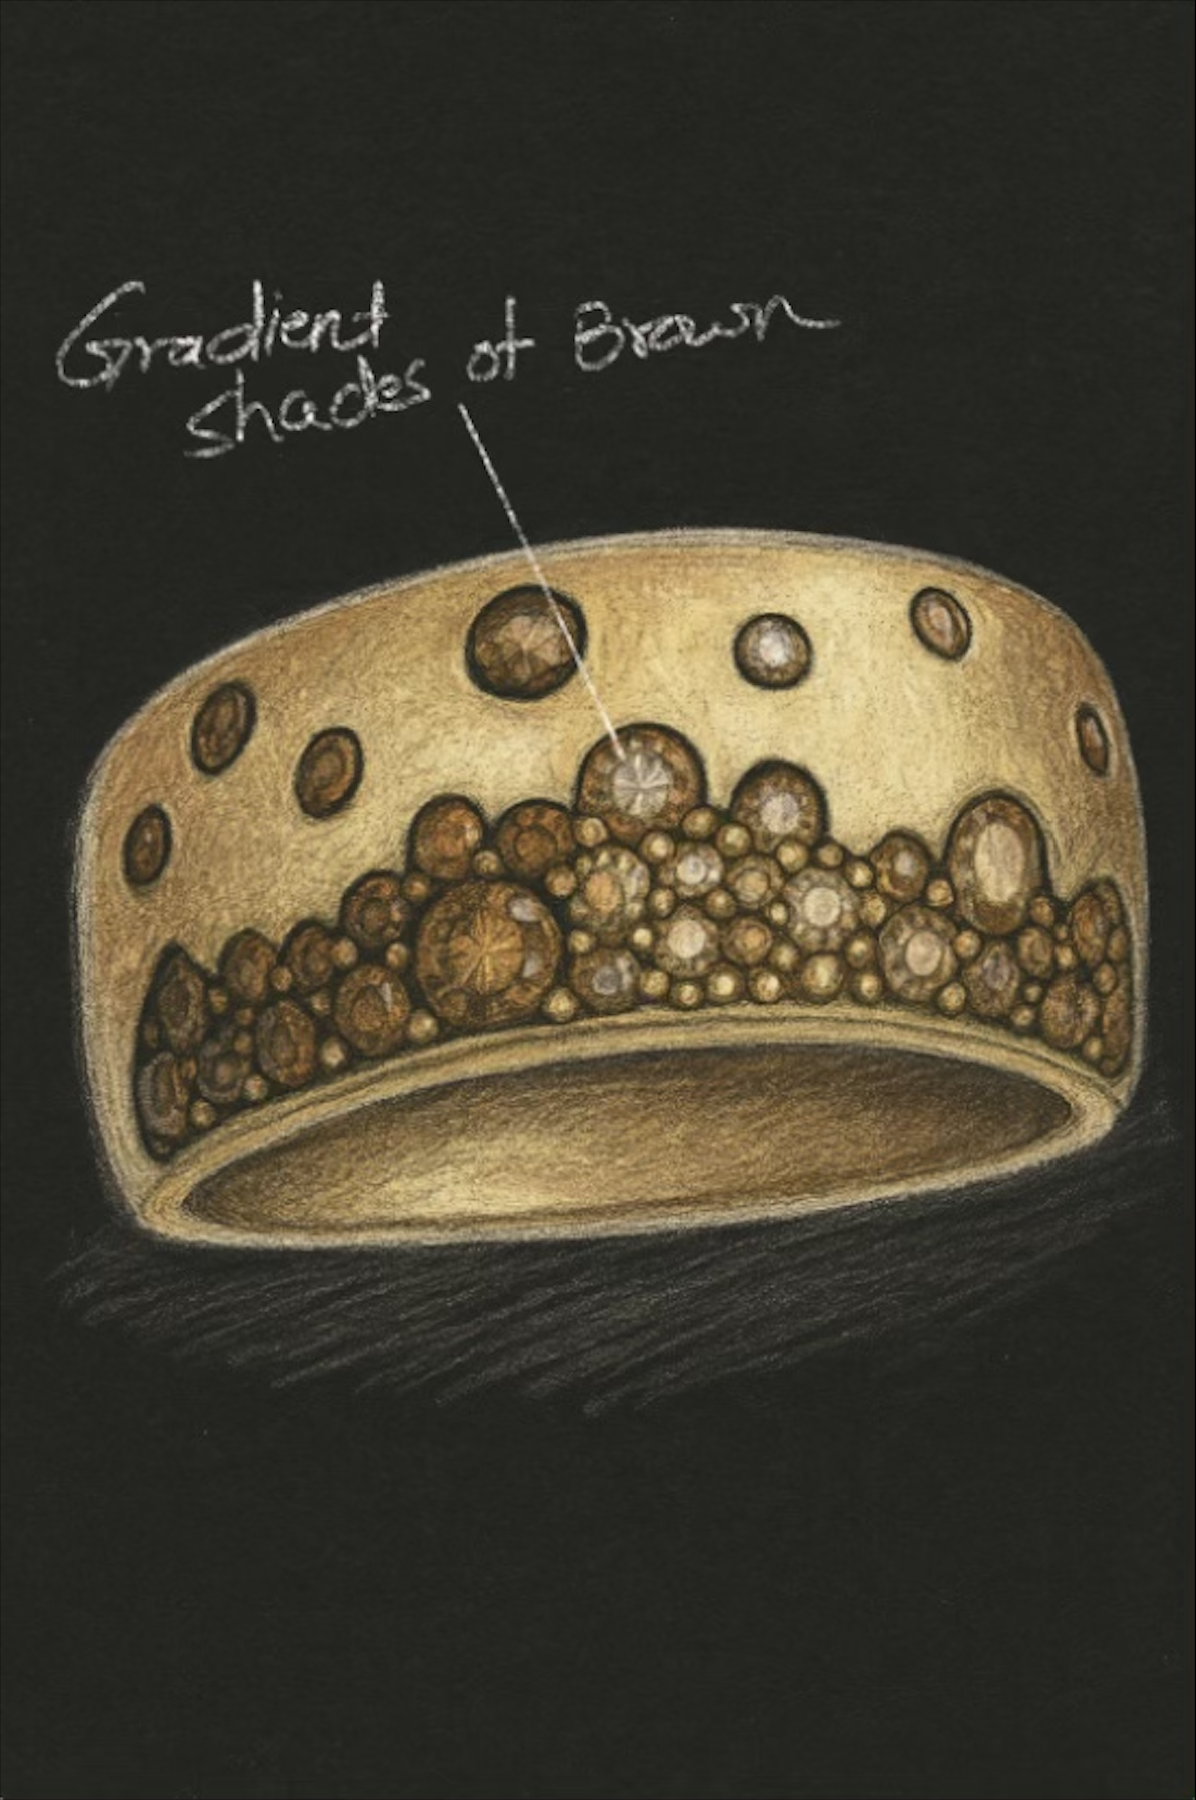 Gradient
shades of Brown